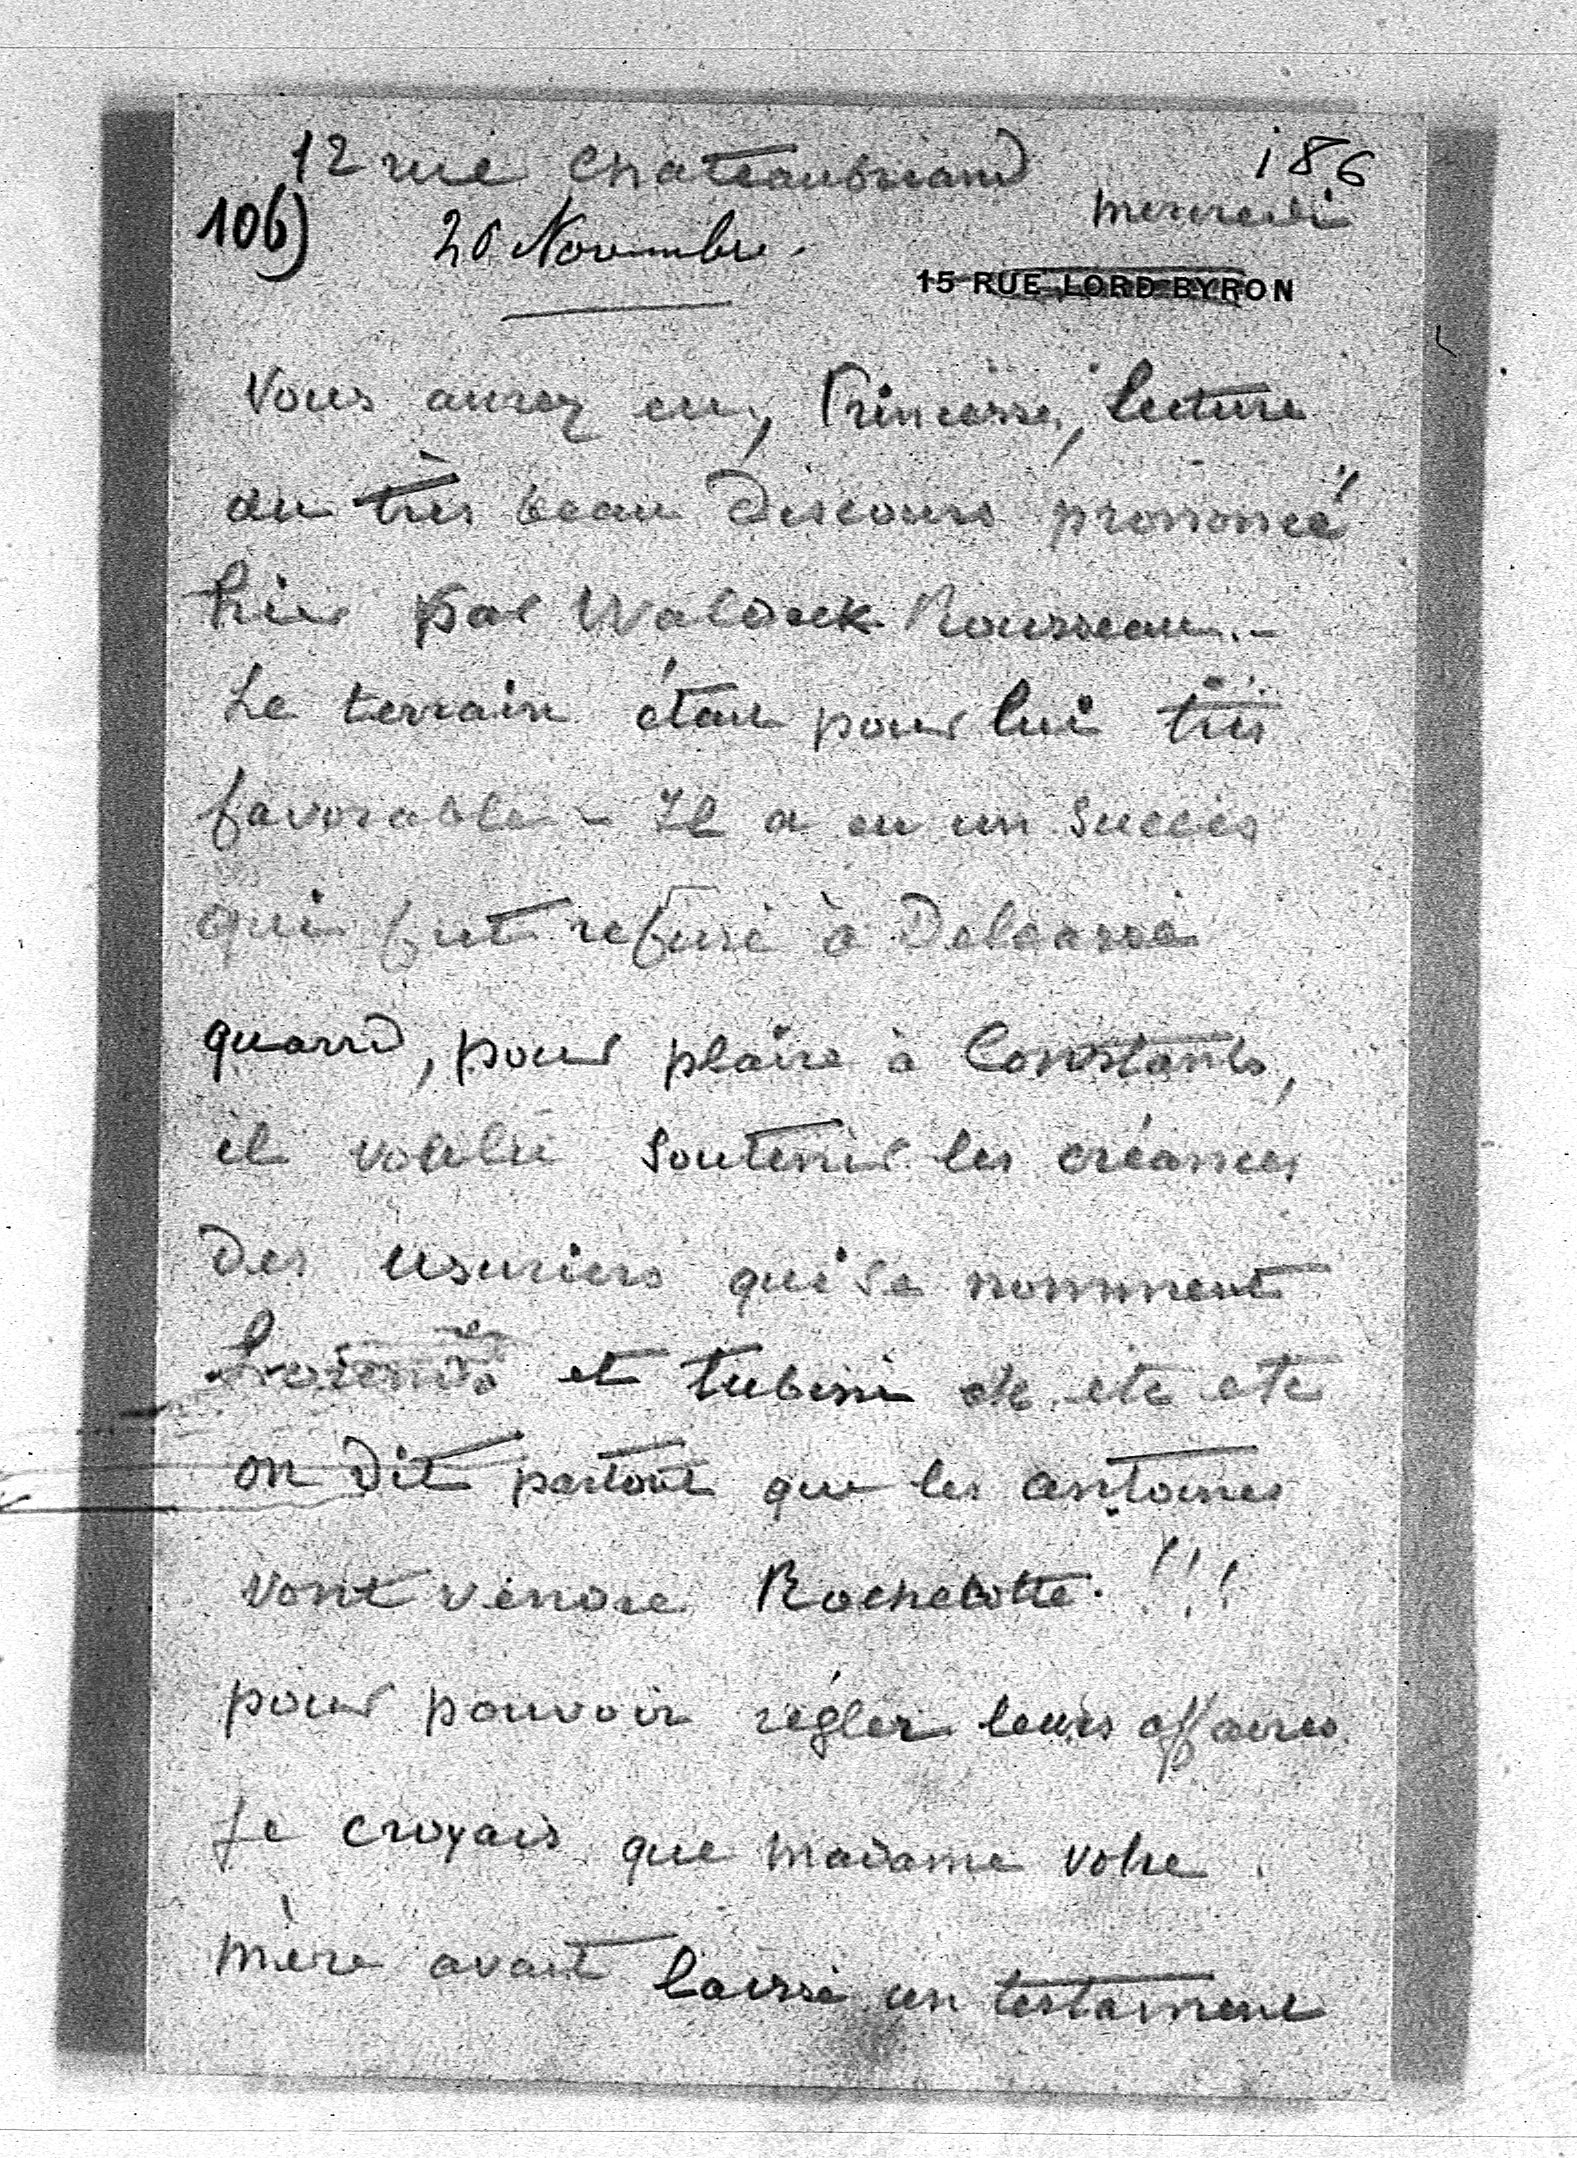 12 rue Chateaubriand
186
mercredi
106)
20 Novembre.
15 RUE LORD BYRON
Vous aurez eu, Princesse, lecture
du très beau discours prononcé
hier par Waldeck Rousseau. -
Le terrain était pour lui très
favorable - Il a eu un succès
qui fut refusé à Delcassé
quand, pour plaire à Constans,
il voulut soutenir les créances
des usuriers qui se nomment
Lorando et Tubini etc. etc etc
on dit partout que les antoines
vont vendre Rochecotte. !!!
pour pouvoir régler leurs affaires.
Je croyais que madame votre
mère avait laissé un testament